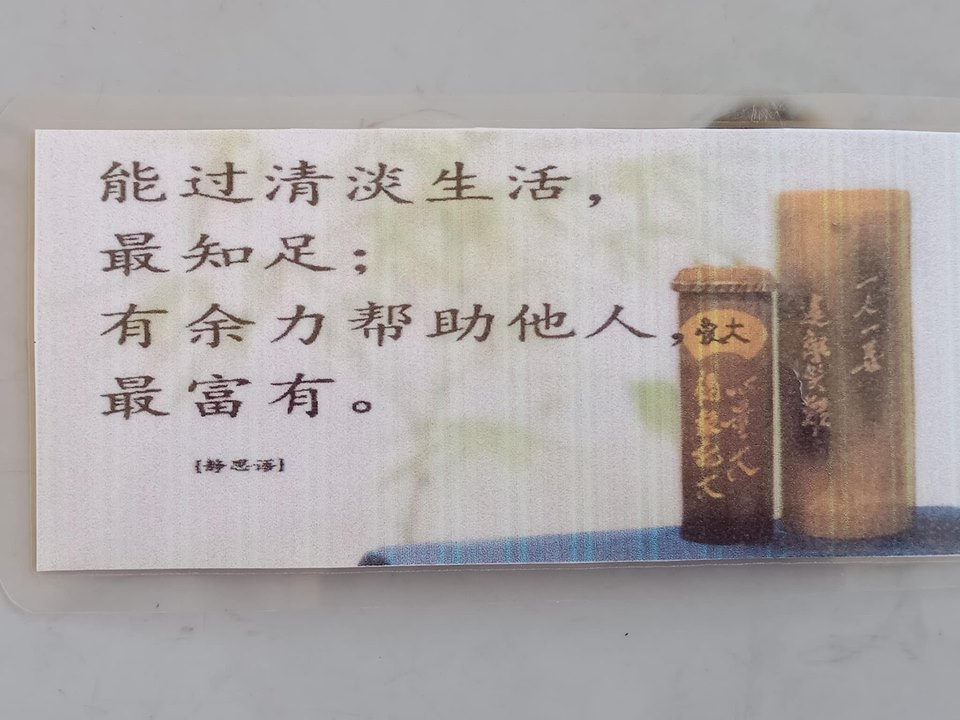 能过清淡生活，
最知足；
有余力帮助他人，
最富有。
[静思语]
大爱
一人一善
遠離災難